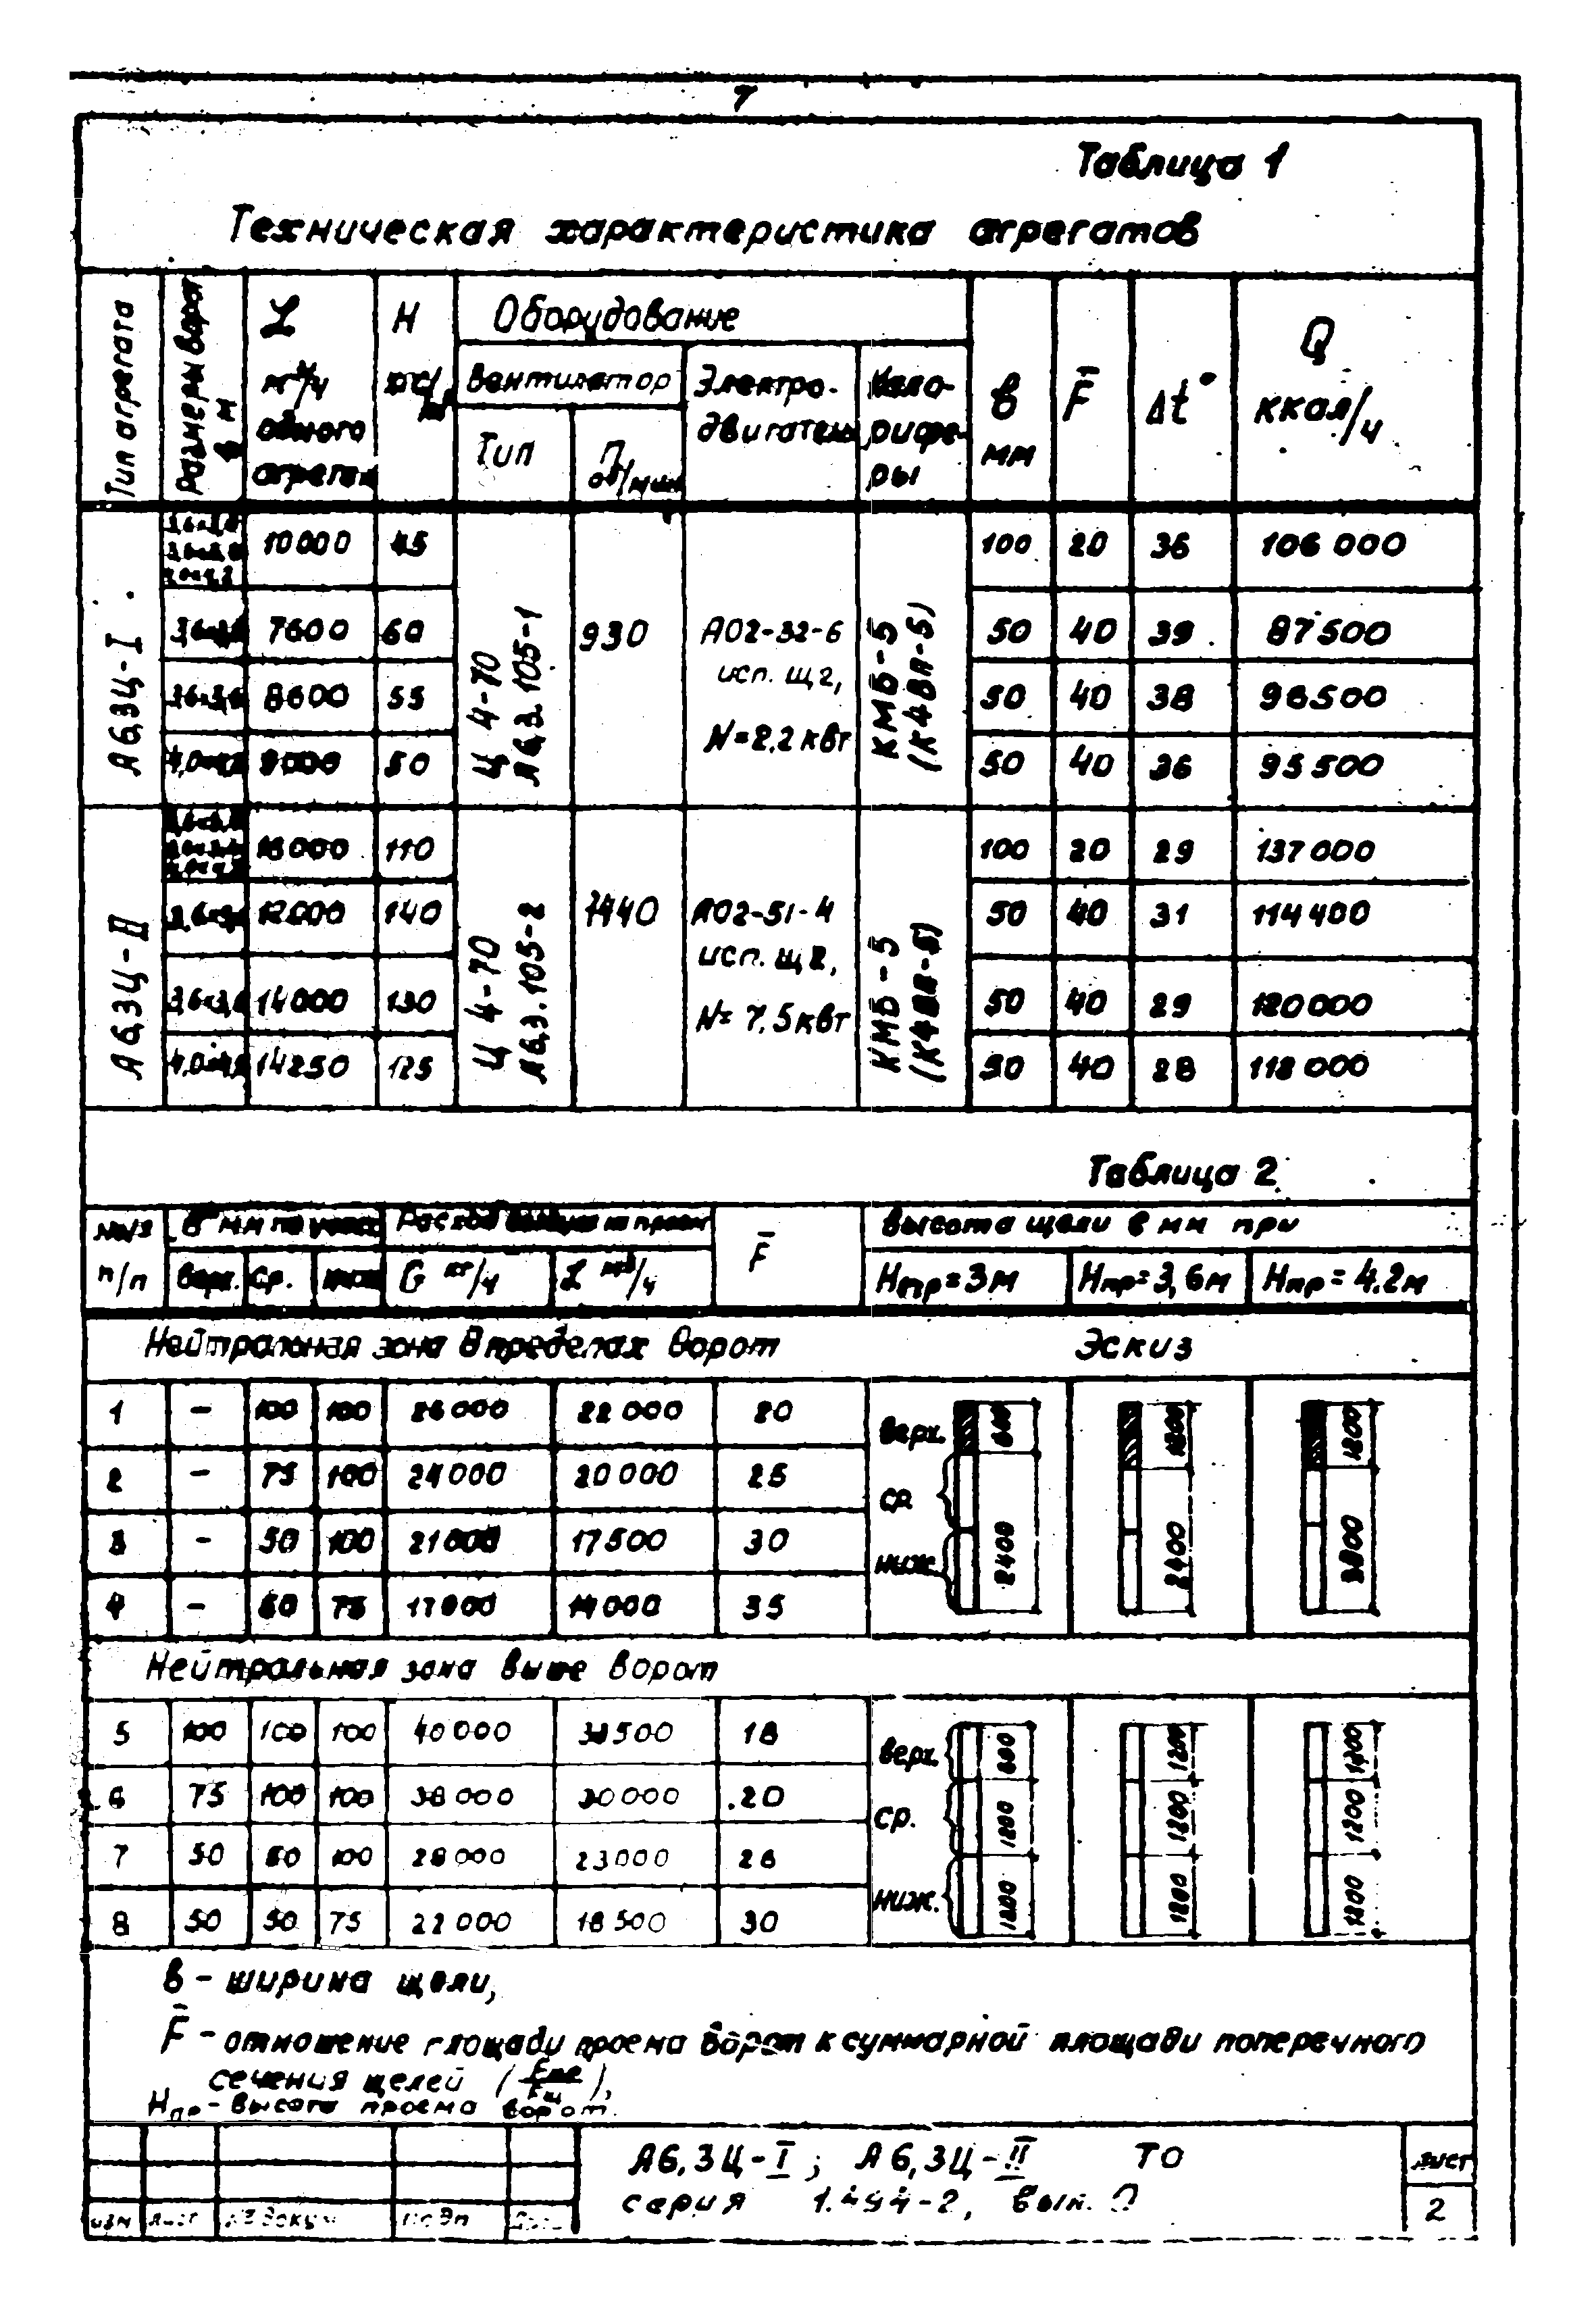 7
Таблица 1
Техническая характеристика агрегатов
Тип агрегата
Размеры ворот в м
L м³/ч одного
H
Оборудование
Вентилятор
Тип
n об/мин
Электро-
двигатель
Кало-
рифе-
ры
в мм
F̄
Δt°
Q ккал/ч
А6,3Ц-I
10000 45
Ц 4-70
А6,3.105-1
930
А02-32-6
исп. Щ2,
N=2,2 квт
КМБ-5
(К4ВП-5)
100 20 36 106 000
7600 60 50 40 39 87500
8600 55 50 40 38 96500
4,0 9000 50 50 40 36 95500
А6,3Ц-II
16000 110
Ц 4-70
А6,3.105-2
1440
А02-51-4
исп. Щ2,
N= 7,5 квт
КМБ-5
100 20 29 137000
12000 140 50 40 31 114400
14000 130 50 40 29 120000
14250 125 50 40 28 118000
Таблица 2
№№
п/п
в мм по
верх. ср.
Расход
G кг/ч L м³/ч
F̄
высота щели в мм при
Нпр=3м Нпр=3,6м Нпр=4.2м
Нейтральная зона в пределах ворот Эскиз
1 – 100 100 26000 22000 20
2 – 75 100 24000 20000 25
3 – 50 100 21000 17500 30
4 – 50 75 17000 14000 35
верх. 600 1200 1200
ср.
ниж. 2400 2400
Нейтральная зона выше ворот
5 100 100 100 40000 18
6 75 100 100 38000 30000 20
7 50 50 100 28000 23000 26
8 50 50 75 22000 18500 30
верх. 600 1200 1200
ср. 1200 1200 1200
ниж. 1200 1200 1200
в - ширина щели,
F̄ - отношение площади проема ворот к суммарной площади поперечного
сечения щелей (Fпр/Fщ),
Нпр - высота проема ворот.
А6,3Ц-I; А6,3Ц-II ТО
серия 1.494-2, вып.
лист
2
изм лист № докум подп